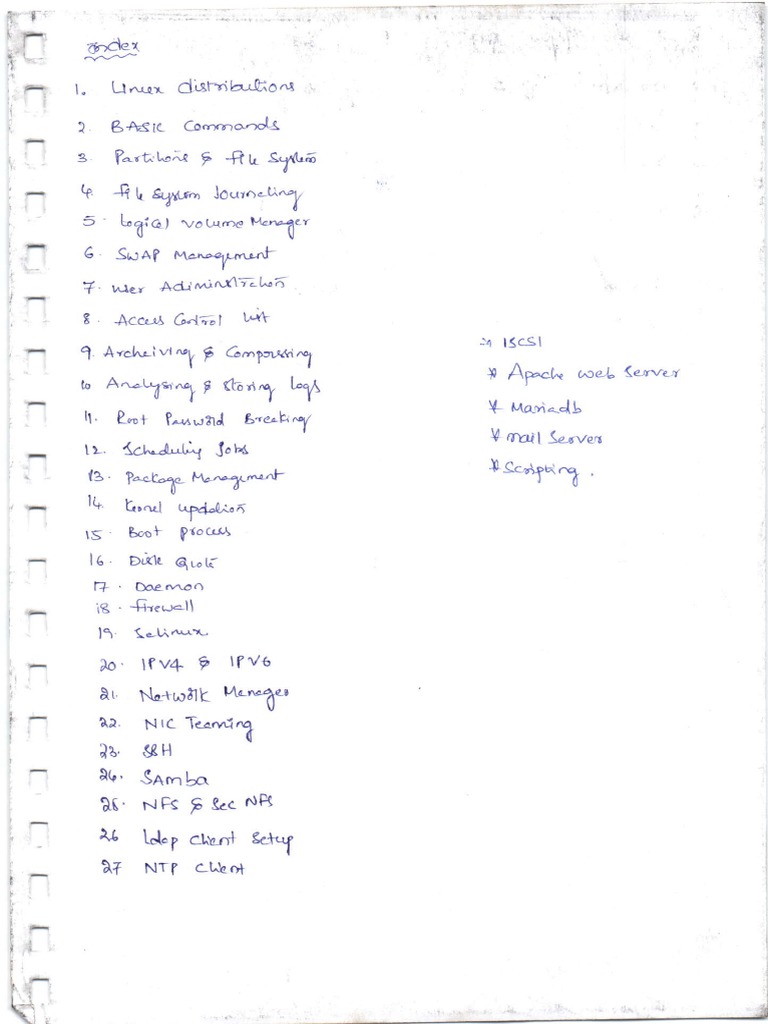 Index
1. Linux distributions
2. BASIC Commands
3. Partitions & file System
4. file System Journaling
5. Logical Volume Manager
6. SWAP Management
7. user Administration
8. Access Control list
9. Archeiving & Compressing
10 Analysing & Storing logs
11. Root Password Breaking
12. Scheduling Jobs
13. Package Management
14 Kernel updation
15. Boot process
16. Disk Quota
17. Daemon
18. firewall
19. Selinux
20. IPV4 & IPV6
21. Network Manager
22. NIC Teaming
23. SSH
24. SAmba
25. NFS & Sec NFS
26 ldap client Setup
27 NTP Client
* ISCSI
* Apache Web Server
* Mariadb
* mail Server
* Scripting.